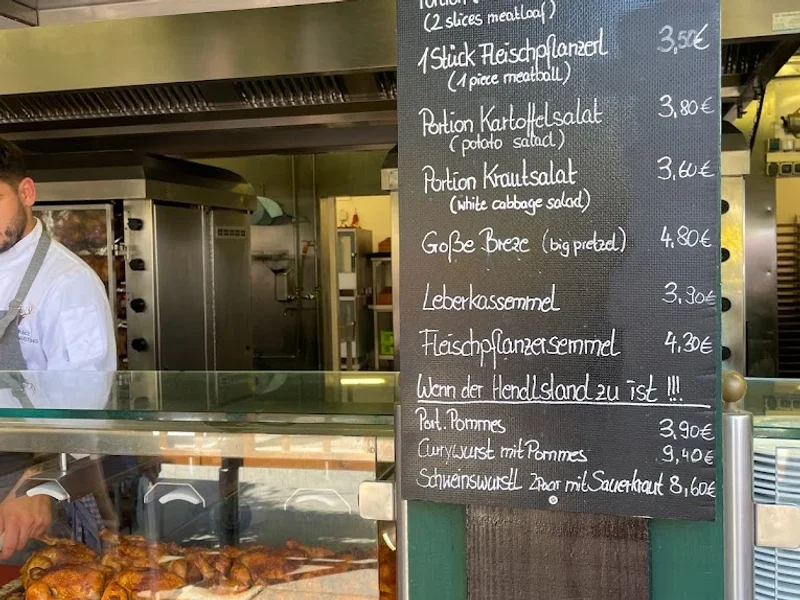 Portion
(2 slices meatloaf)
1 Stück Fleischpflanzerl 3,50€
(1 piece meatball)
Portion Kartoffelsalat 3,80€
(potato salad)
Portion Krautsalat 3,60€
(white cabbage salad)
Goße Breze (big pretzel) 4,80€
Leberkassemmel 3,90€
Fleischpflanzersemmel 4,30€
Wenn der Hendlstand zu ist !!!
Port. Pommes 3,90€
Currywurst mit Pommes 9,40€
Schweinswurstl 2 Paar mit Sauerkraut 8,60€